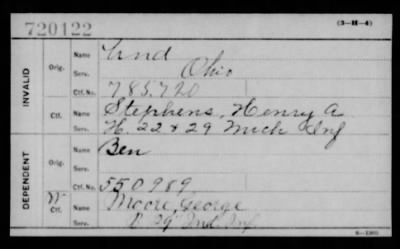 720122
(3-H-4)
INVALID
Orig.
Name
Und
Serv.
Ohio
Ctf. No.
785,720
Ctf.
Name
Stephens, Henry A
Serv.
H. 22 & 29 Mich Inf
DEPENDENT
Orig.
Name
Ben
Serv.
Ctf. No.
550989
W
Ctf.
Name
Moore, George
Serv.
29 Ind. Inf.